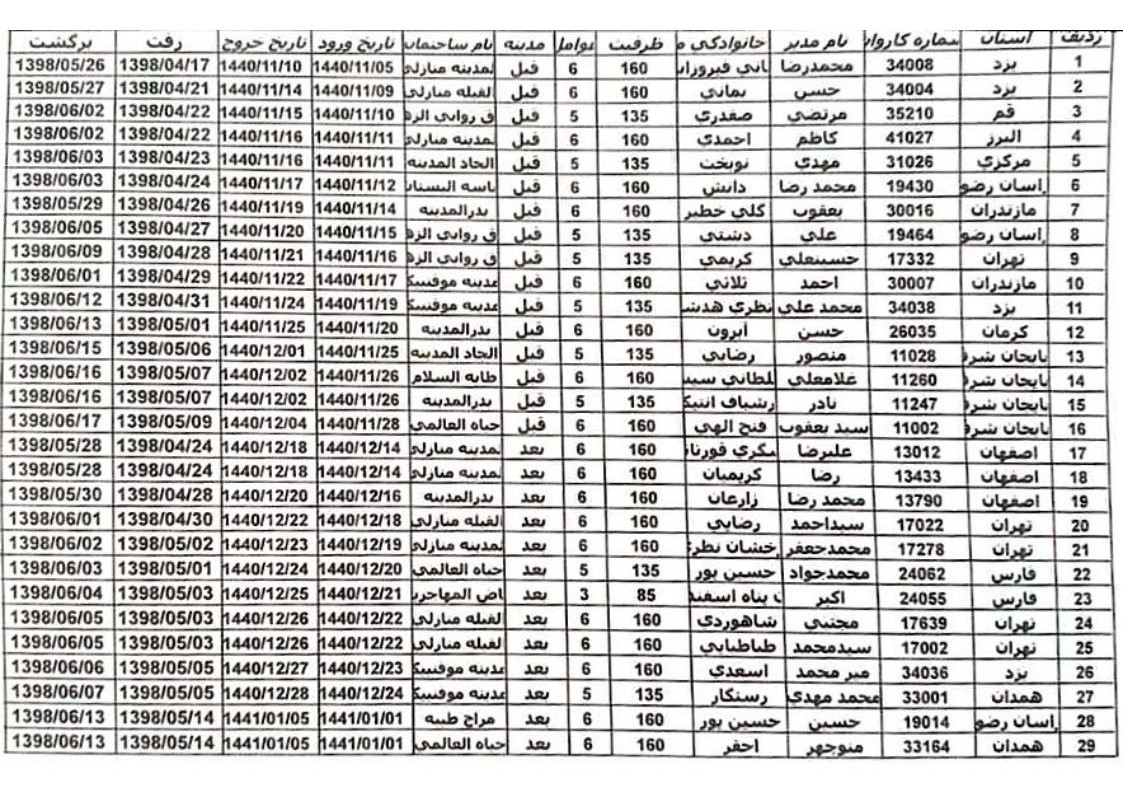 ردیف استان شماره کاروان نام مدیر خانوادگی ظرفیت عوامل مدینه نام ساختمان تاریخ ورود تاریخ خروج رفت برگشت
1 یزد 34008 محمدرضا 160 6 قبل 1440/11/05 1440/11/10 1398/04/17 1398/05/26
2 یزد 34004 حسن یمانی 160 6 قبل 1440/11/09 1440/11/14 1398/04/21 1398/05/27
3 قم 35210 مرتضی صفدری 135 5 قبل 1440/11/10 1440/11/15 1398/04/22 1398/06/02
4 البرز 41027 کاظم احمدی 160 6 قبل 1440/11/11 1440/11/16 1398/04/22 1398/06/02
5 مرکزی 31026 مهدی نوبخت 135 5 قبل الجاد المدینه 1440/11/11 1440/11/16 1398/04/23 1398/06/03
6 راسان رضو 19430 محمد رضا دانش 160 6 قبل 1440/11/12 1440/11/17 1398/04/24 1398/06/03
7 مازندران 30016 یعقوب گلی خطیر 160 6 قبل بدرالمدینه 1440/11/14 1440/11/19 1398/04/26 1398/05/29
8 راسان رضو 19464 علی دشتی 135 5 قبل 1440/11/15 1440/11/20 1398/04/27 1398/06/05
9 تهران 17332 حسینعلی کریمی 135 5 قبل 1440/11/16 1440/11/21 1398/04/28 1398/06/09
10 مازندران 30007 احمد ثلاثی 160 6 قبل 1440/11/17 1440/11/22 1398/04/29 1398/06/01
11 یزد 34038 محمد علی نظری هدش 135 5 قبل 1440/11/19 1440/11/24 1398/04/31 1398/06/12
12 کرمان 26035 حسن ایرون 160 6 قبل بدرالمدینه 1440/11/20 1440/11/25 1398/05/01 1398/06/13
13 بایجان شرق 11028 منصور رضایی 135 5 قبل الجاد المدینه 1440/11/25 1440/12/01 1398/05/06 1398/06/15
14 بایجان شرق 11260 غلامعلی 160 6 قبل طابه السلام 1440/11/26 1440/12/02 1398/05/07 1398/06/16
15 بایجان شرق 11247 نادر 135 5 قبل بدرالمدینه 1440/11/26 1440/12/02 1398/05/07 1398/06/16
16 بایجان شرق 11002 سید یعقوب فتح الهی 160 6 قبل حیاه العالمی 1440/11/28 1440/12/04 1398/05/09 1398/06/17
17 اصفهان 13012 علیرضا 160 6 بعد 1440/12/14 1440/12/18 1398/04/24 1398/05/28
18 اصفهان 13433 رضا کریمیان 160 6 بعد 1440/12/14 1440/12/18 1398/04/24 1398/05/28
19 اصفهان 13790 محمد رضا زارعان 160 6 بعد بدرالمدینه 1440/12/16 1440/12/20 1398/04/28 1398/05/30
20 تهران 17022 سیداحمد رضایی 160 6 بعد 1440/12/18 1440/12/22 1398/04/30 1398/06/01
21 تهران 17278 محمدجعفر رخشان نظر 160 6 بعد 1440/12/19 1440/12/23 1398/05/02 1398/06/02
22 فارس 24062 محمدجواد حسین پور 135 5 بعد حیاه العالمی 1440/12/20 1440/12/24 1398/05/01 1398/06/03
23 فارس 24055 اکبر 85 3 بعد 1440/12/21 1440/12/25 1398/05/03 1398/06/04
24 تهران 17639 مجتبی شاهوردی 160 6 بعد 1440/12/22 1440/12/26 1398/05/03 1398/06/05
25 تهران 17002 سیدمحمد طباطبایی 160 6 بعد 1440/12/22 1440/12/26 1398/05/03 1398/06/05
26 یزد 34036 میر محمد اسعدی 160 6 بعد 1440/12/23 1440/12/27 1398/05/05 1398/06/06
27 همدان 33001 محمد مهدی رستگار 135 5 بعد 1440/12/24 1440/12/28 1398/05/05 1398/06/07
28 راسان رضو 19014 حسین حسین پور 160 6 بعد مراج طیبه 1441/01/01 1441/01/05 1398/05/14 1398/06/13
29 همدان 33164 منوچهر احقر 160 6 بعد حیاه العالمی 1441/01/01 1441/01/05 1398/05/14 1398/06/13